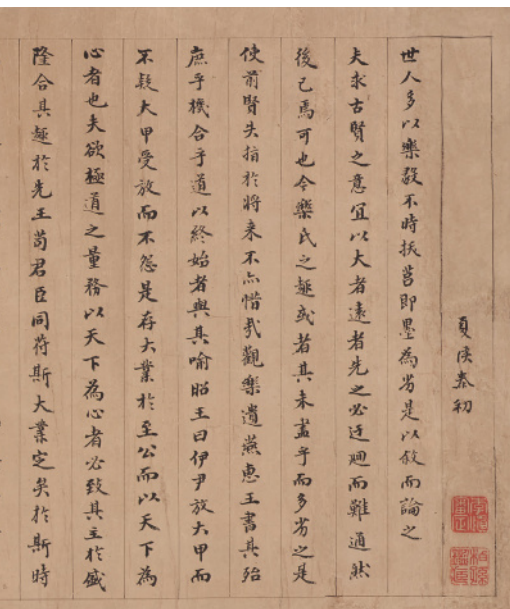 夏侯泰初
世人多以樂毅不時拔莒即墨為劣是以敘而論之
夫求古賢之意宜以大者遠者先之必迂迴而難通然
後已焉可也今樂氏之趣或者其未盡乎而多劣之是
使前賢失指於將來不亦惜哉觀樂遺燕惠王書其殆
庶乎機合乎道以終始者與其喻昭王曰伊尹放大甲而
不疑大甲受放而不怨是存大業於至公而以天下為
心者也夫欲極道之量務以天下為心者必致其主於盛
隆合其趣於先王苟君臣同符斯大業定矣於斯時